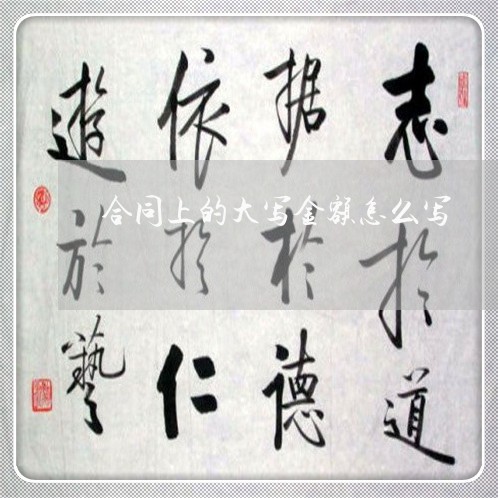 志於道
据於德
依於仁
遊於藝
合同上的大写金额怎么写